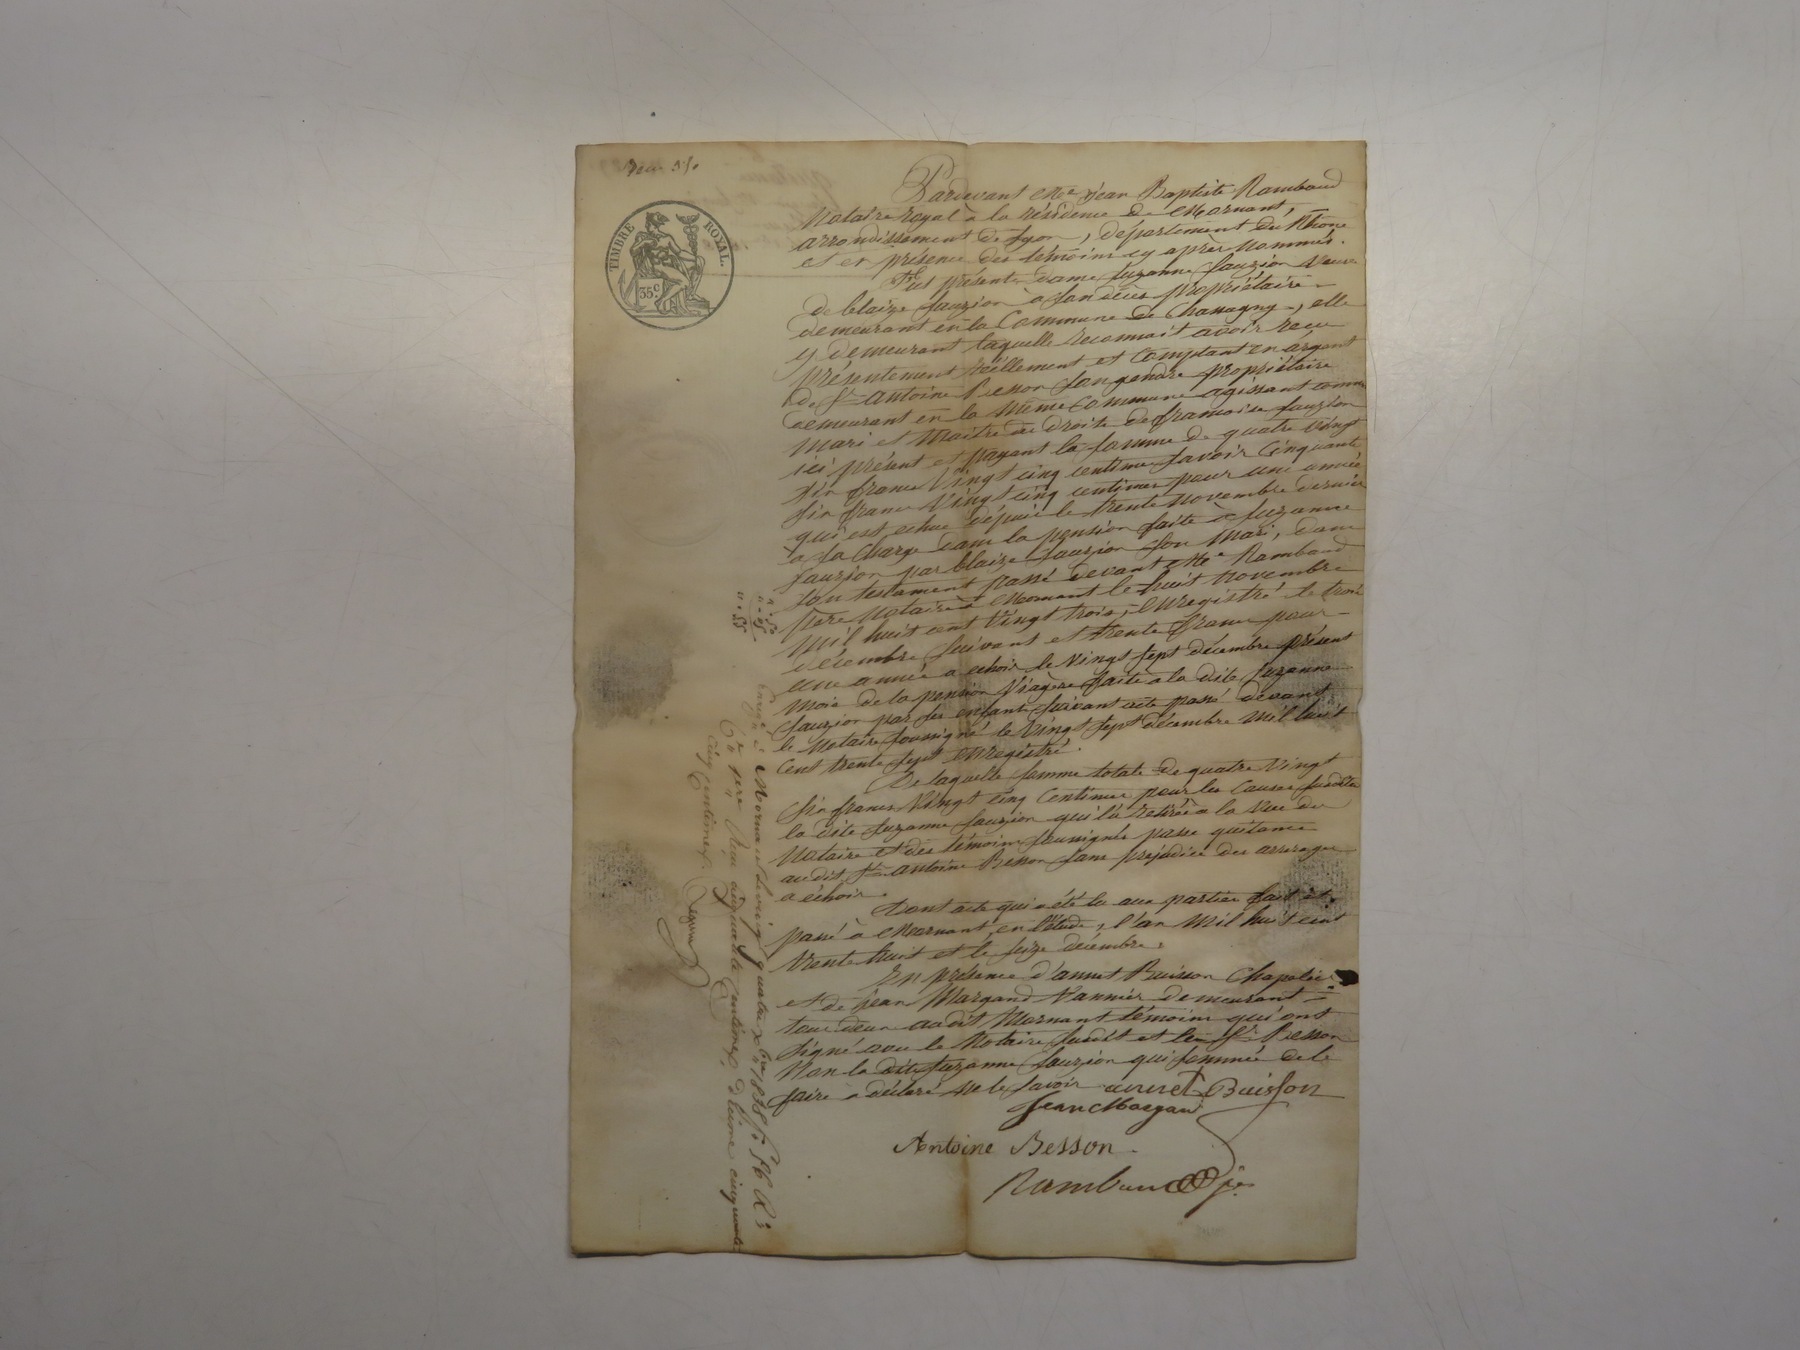 TIMBRE ROYAL.
35 c.
Pardevant Me jean Baptiste Rambaud
Notaire royal à la résidence de Mornant,
arrondissement de Lyon, département du Rhône
et en présence des témoins cy après nommés.
fut présente dame Suzanne fauzion veuve
de blaize fauzion à son décès propriétaire
demeurant en la Commune de Chassagny, elle
y demeurant laquelle reconnait avoir reçu
présentement réellement et comptant en argent
de Sr antoine Besson son gendre propriétaire
demeurant en la même Commune agissant comme
mari et maitre des droits de francoise fauzion
ici présent et payant la somme de quatre vingt
six francs Vingt cinq centimes savoir Cinquante
six francs Vingt cinq centimes pour une année
qui est echue depuis le trente novembre dernier
a sa charge dans la pension faite à Suzanne
fauzion par blaize fauzion son Mari, dans
son testament passé devant Me Rambaud
père Notaire à Mornant le huit novembre
mil huit cent Vingt trois, enregistré le trois
décembre suivant et trente francs pour
une année a echoir le Vingt sept décembre présent
mois de la pension Viagère faite a la dite Suzanne
fauzion par ses enfants suivant acte passé devant
le Notaire soussigné le Vingt sept décembre mil huit
cent trente sept enregistré.
De laquelle somme totale de quatre Vingt
six francs Vingt cinq Centimes pour les Causes susdites
la dite Suzanne fauzion qui l'a retirée a la vue du
Notaire et des témoins soussignés passe quitance
audit Sr antoine Besson sans préjudice des arrerages
a échoir.
Dont acte qui a été lu aux parties fait et
passé à Mornant en l'étude, l'an Mil huit cent
trente huit et le seize décembre.
En présence d'annet Buisson Chapelier
et de jean Margand Vannier demeurant
tous deux audit Mornant témoins qui ont
signé avec le Notaire susdit et le Sr Besson
Non la dite Suzanne fauzion qui sommée de le
faire a déclaré ne le savoir annet Buisson
Jean Margan
Antoine Besson
Rambaud